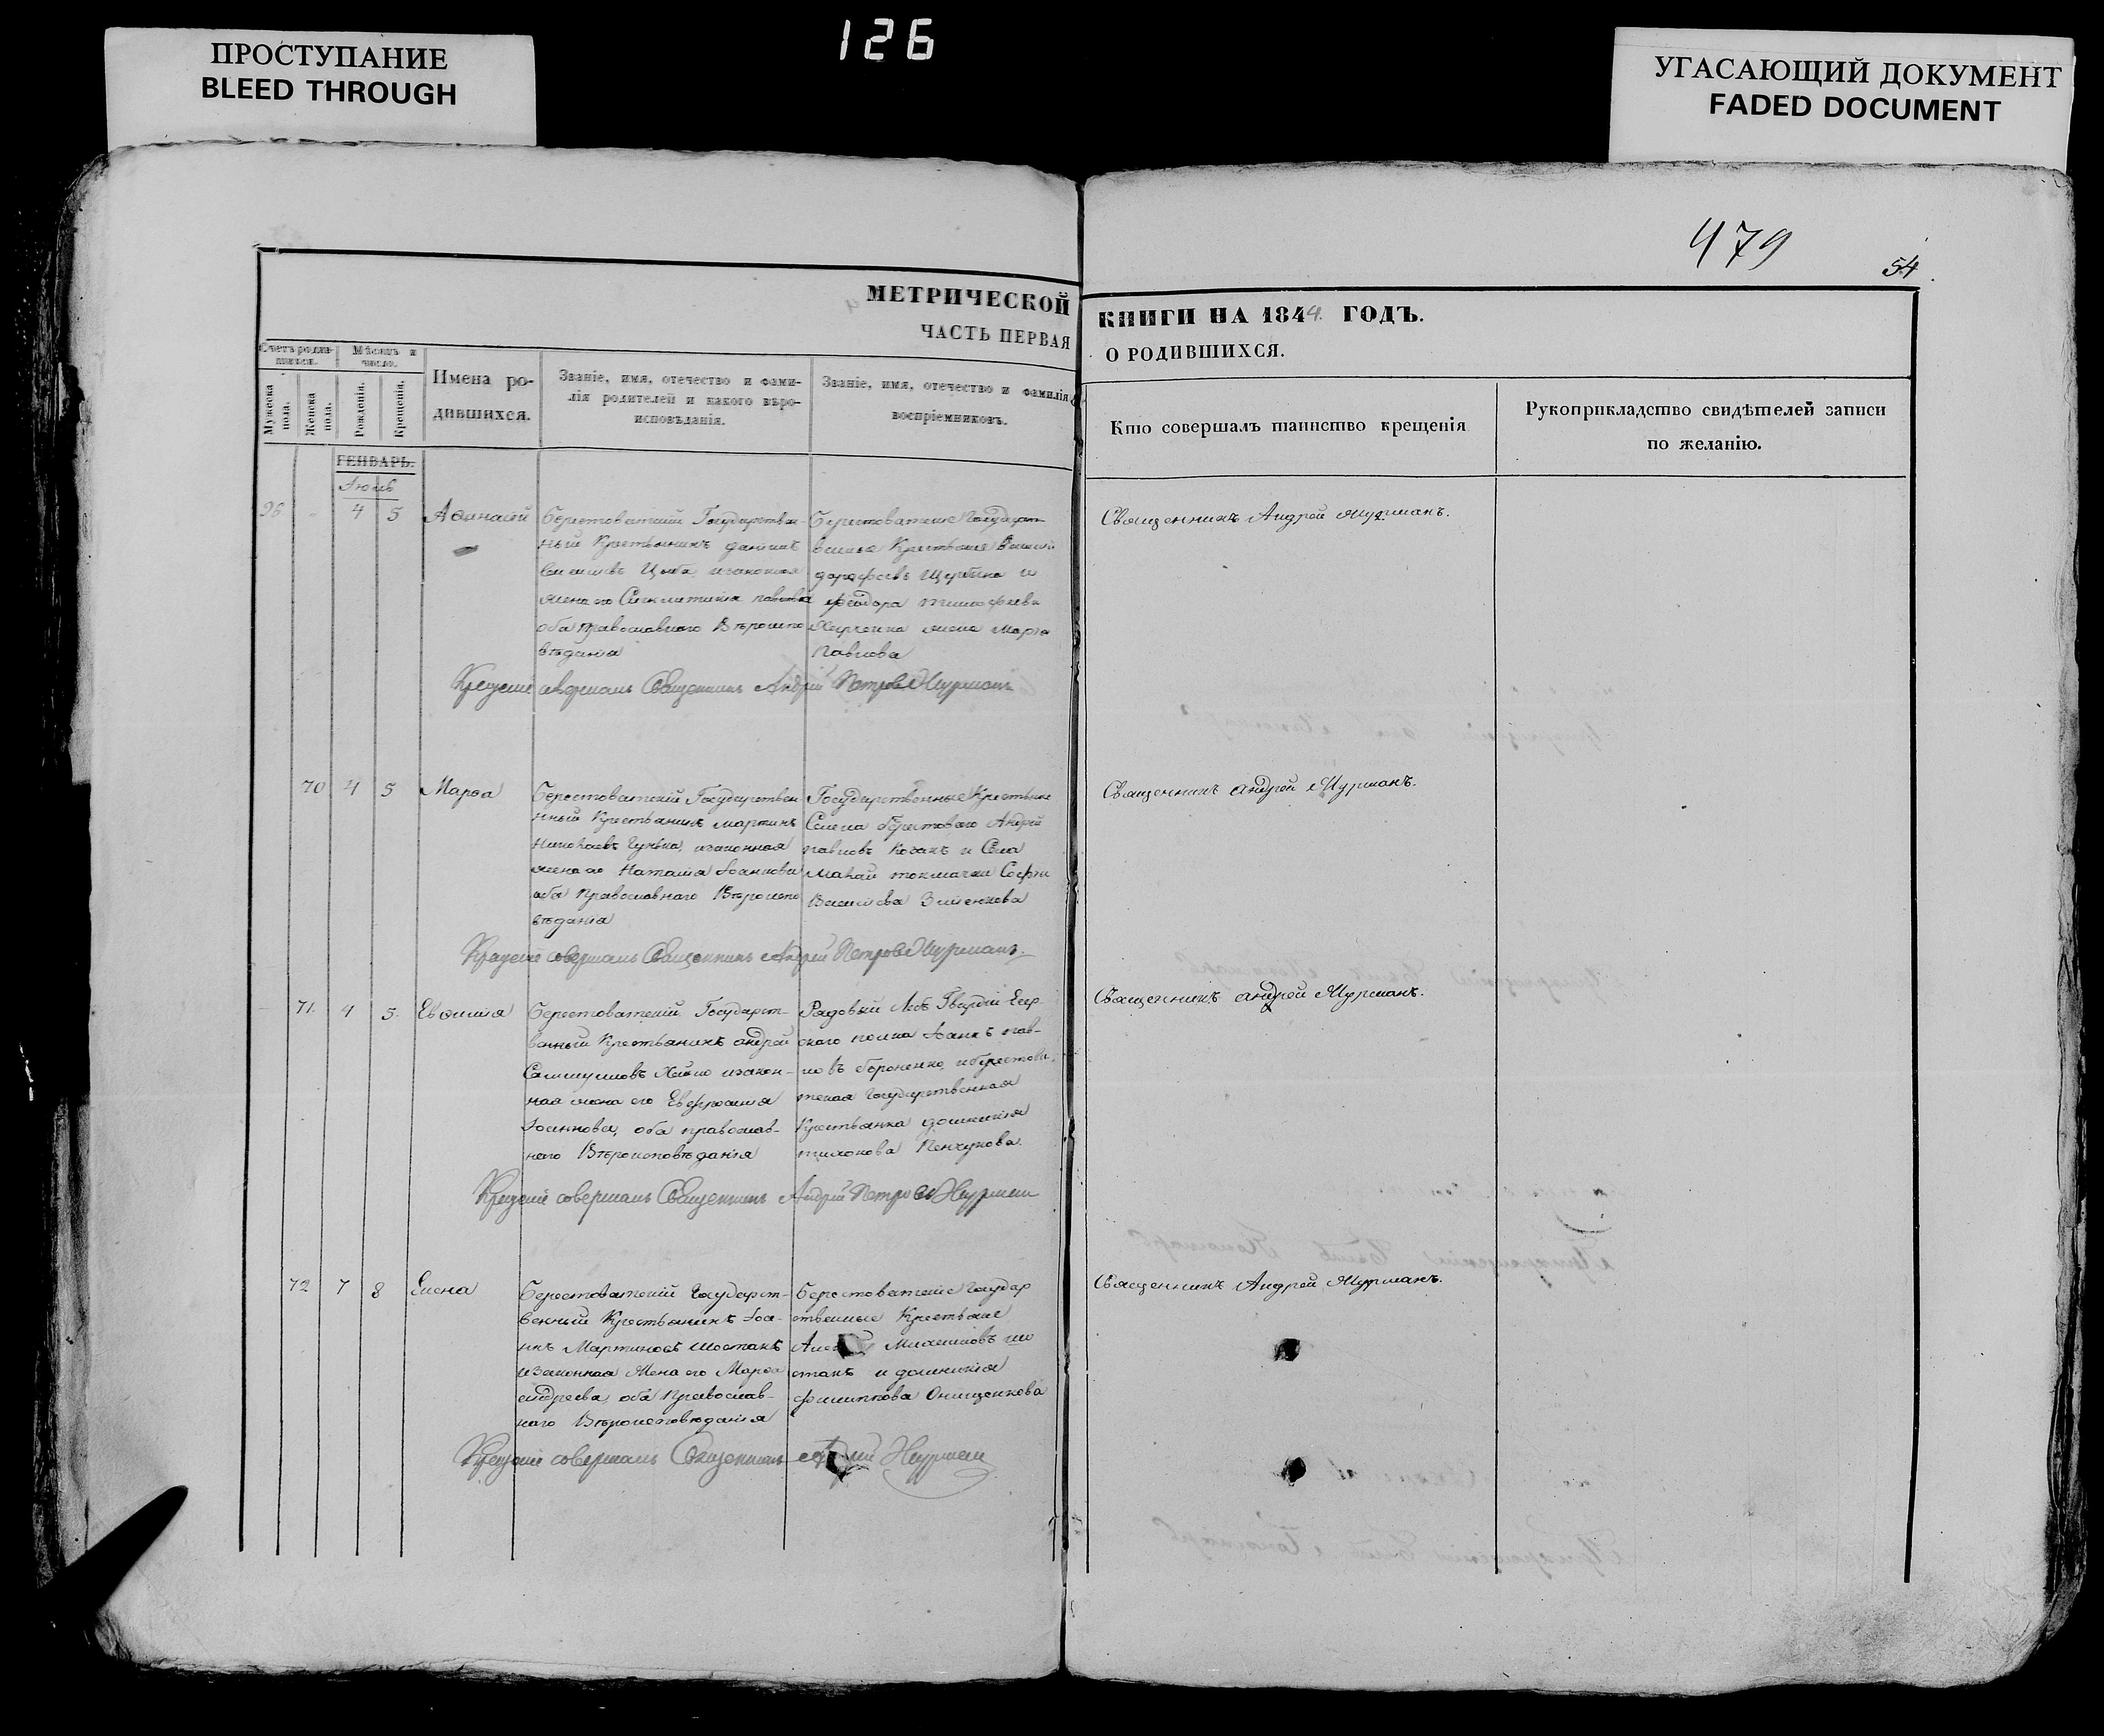 ПРОСТУПАНИЕ
BLEED THROUGH
126
УГАСАЮЩИЙ ДОКУМЕНТ
FADED DOCUMENT
479
54
МЕТРИЧЕСКОЙ
ЧАСТЬ ПЕРВАЯ
КНИГИ НА 1844. ГОДЪ.
О РОДИВШИХСЯ.
Счетъ родив-
шихся.
Мужеска пола.
Женска пола.
Мѣсяцъ и
число.
Рожденія.
Крещенія.
Имена ро-
дившихся.
Званіе, имя, отечество и фами-
лія родителей и какого вѣро-
исповѣданія.
Званіе, имя, отечество и фамилія
воспріемниковъ.
Кто совершалъ таинство крещенія
Рукоприкладство свидѣтелей записи
по желанію.
ГЕНВАРЬ.
Іюль
96 4 5 Аѳанасій
Берестоватскій Государствен-
ный Крестьянинъ
Цыба, изаконная
жена его Синклитикія
оба Православнаго Вѣроиспо
вѣданія
Берестоватскіе Государст
венные Крестьяне
Щербина и
Феодора Тимофеева
жена Марѳа
Павлова
Крещеніе совершалъ Священникъ Андрей Петровъ Мурманъ
Священникъ Андрей Мурманъ.
70 4 5 Марѳа
Берестоватскій Государствен
нный Крестьянинъ Мартинъ
Николаевъ изаконная
жена его Наталія Іоаннова
оба Православнаго Вѣроиспо
вѣданія
Государственные Крестьяне
Села Берестоваго Андрей
Павловъ Козакъ и Села
Малой токмачки Софія
Васильева
Крещеніе совершалъ Священникъ Андрей Петровъ Мурманъ.
Священникъ Андрей Мурманъ.
71. 4 5. Евѳимія
Берестоватскій Государст-
венный Крестьянинъ Андрей
Самуиловъ изакон-
ная жена его Евфросинія
Іоаннова, оба православ-
наго Вѣроисповѣданія
Рядовый Лебъ Гвардіи Егер
скаго полка Іаннъ Пав-
ловъ Бороненко, иберестова
тская Государственная
Крестьянка Домникія
Тихонова
Крещеніе совершалъ Священникъ Андрей Петровъ Мурманъ
Священникъ Андрей Мурманъ.
72 7 8 Елена
Берестоватскій Государст-
венный Крестьянинъ Іоа-
ннъ Мартиновъ Шостакъ
изаконная Жена его Марѳа
андреева, оба Православ-
наго Вѣроисповѣданія
Берестоватскіе Государ
ственные Крестьяне
Михаиловъ шо
стакъ и домникія
Филиппова Онищенкова
Крещеніе совершалъ Священникъ Мурман
Священникъ Андрей Мурманъ.